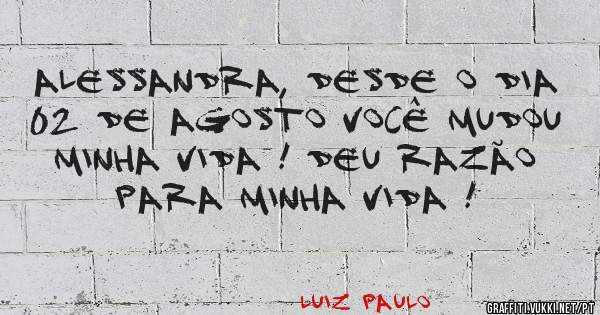 ALESSANDRA, DESDE O DIA
02 DE AGOSTO VOCÊ MUDOU
MINHA VIDA ! DEU RAZÃO
PARA MINHA VIDA !
LUIZ PAULO
GRAFFITI.VUKKI.NET/PT